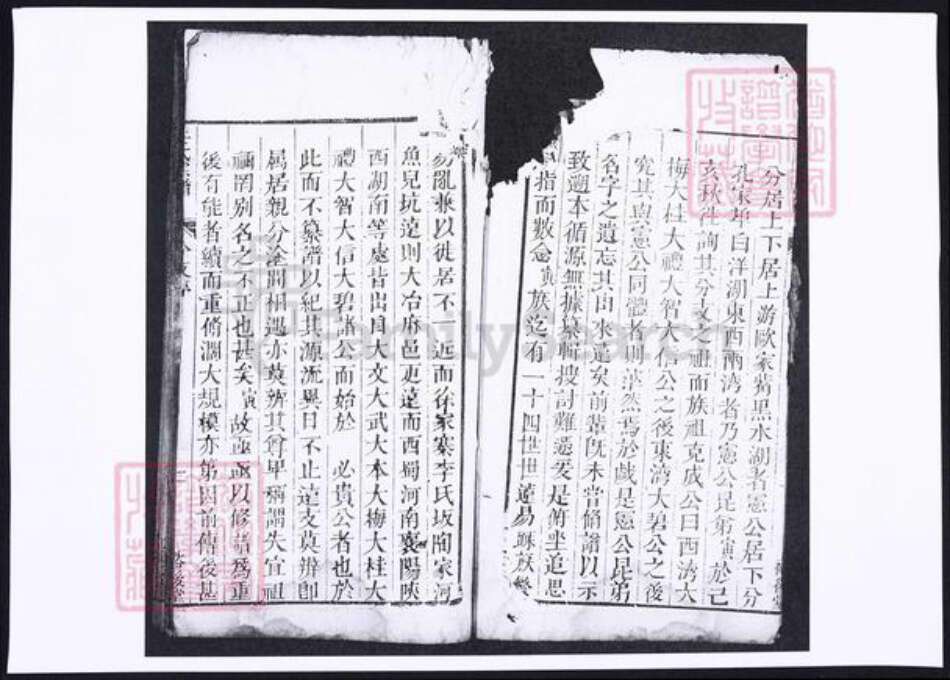 分居上下居上游歐家蒴黑水湖者憲公居下分
孔家埠白洋湖東西兩湾者乃憲公昆弟寅於己
亥秋詢其分支之祖而族祖克成公曰西湾大
梅大桂大禮大智大信公之後東湾大碧公之後
究其與憲公同體者則茫然焉於戲是憲公昆弟
名字之遺忘其由來遠矣前輩既未嘗脩譜以示
致遡本循源無據纂輯搜討難憑爰是俯坐追思
指而數念寅族迄有一十四世世遠易踈族繁
易亂兼以徙居不一近而徐家寨李氏坂陶家河
魚兒坑遠則大冶麻邑更遠而西蜀河南襄陽陝
西湖南等處皆出自大文大武大本大梅大桂大
禮大智大信大碧諸公而始於 必貴公者也於
此而不纂譜以紀其源流異日不止遠支莫辨即
屬居親分途間相遇亦莫辨其尊卑稱謂失宜祖
禰罔别名之不正也甚矣寅故亟亟以修譜爲重
後有能者續而重脩濶大規模亦第因前傳後甚